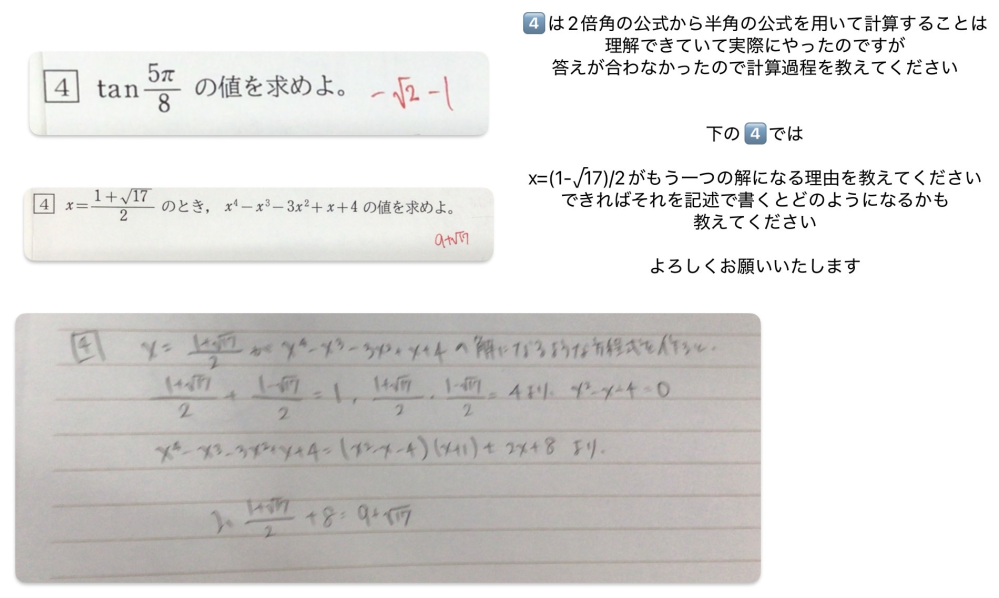 4 tan 5π/8 の値を求めよ。 -√2-1
4は2倍角の公式から半角の公式を用いて計算することは
理解できていて実際にやったのですが
答えが合わなかったので計算過程を教えてください
下の4では
x=(1-√17)/2がもう一つの解になる理由を教えてください
できればそれを記述で書くとどのようになるかも
教えてください
よろしくお願いいたします
4 x=(1+√17)/2 のとき, x⁴-x³-3x²+x+4 の値を求めよ。
9+√17
4 x= (1+√17)/2 が x⁴-x³-3x²+x+4 の解になるような方程式を作ると.
(1+√17)/2 + (1-√17)/2 = 1, (1+√17)/2 · (1-√17)/2 = 4より x²-x-4=0
x⁴-x³-3x²+x+4=(x²-x-4)(x+1)+2x+8 より.
2· (1+√17)/2 +8=9+√17